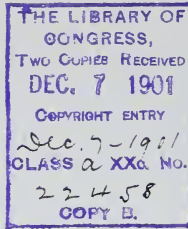 THE LIBRARY OF
CONGRESS,
TWO COPIES RECEIVED
DEC. 7 1901
COPYRIGHT ENTRY
Dec. 7-1901
CLASS a XXc. No.
22458
COPY B.